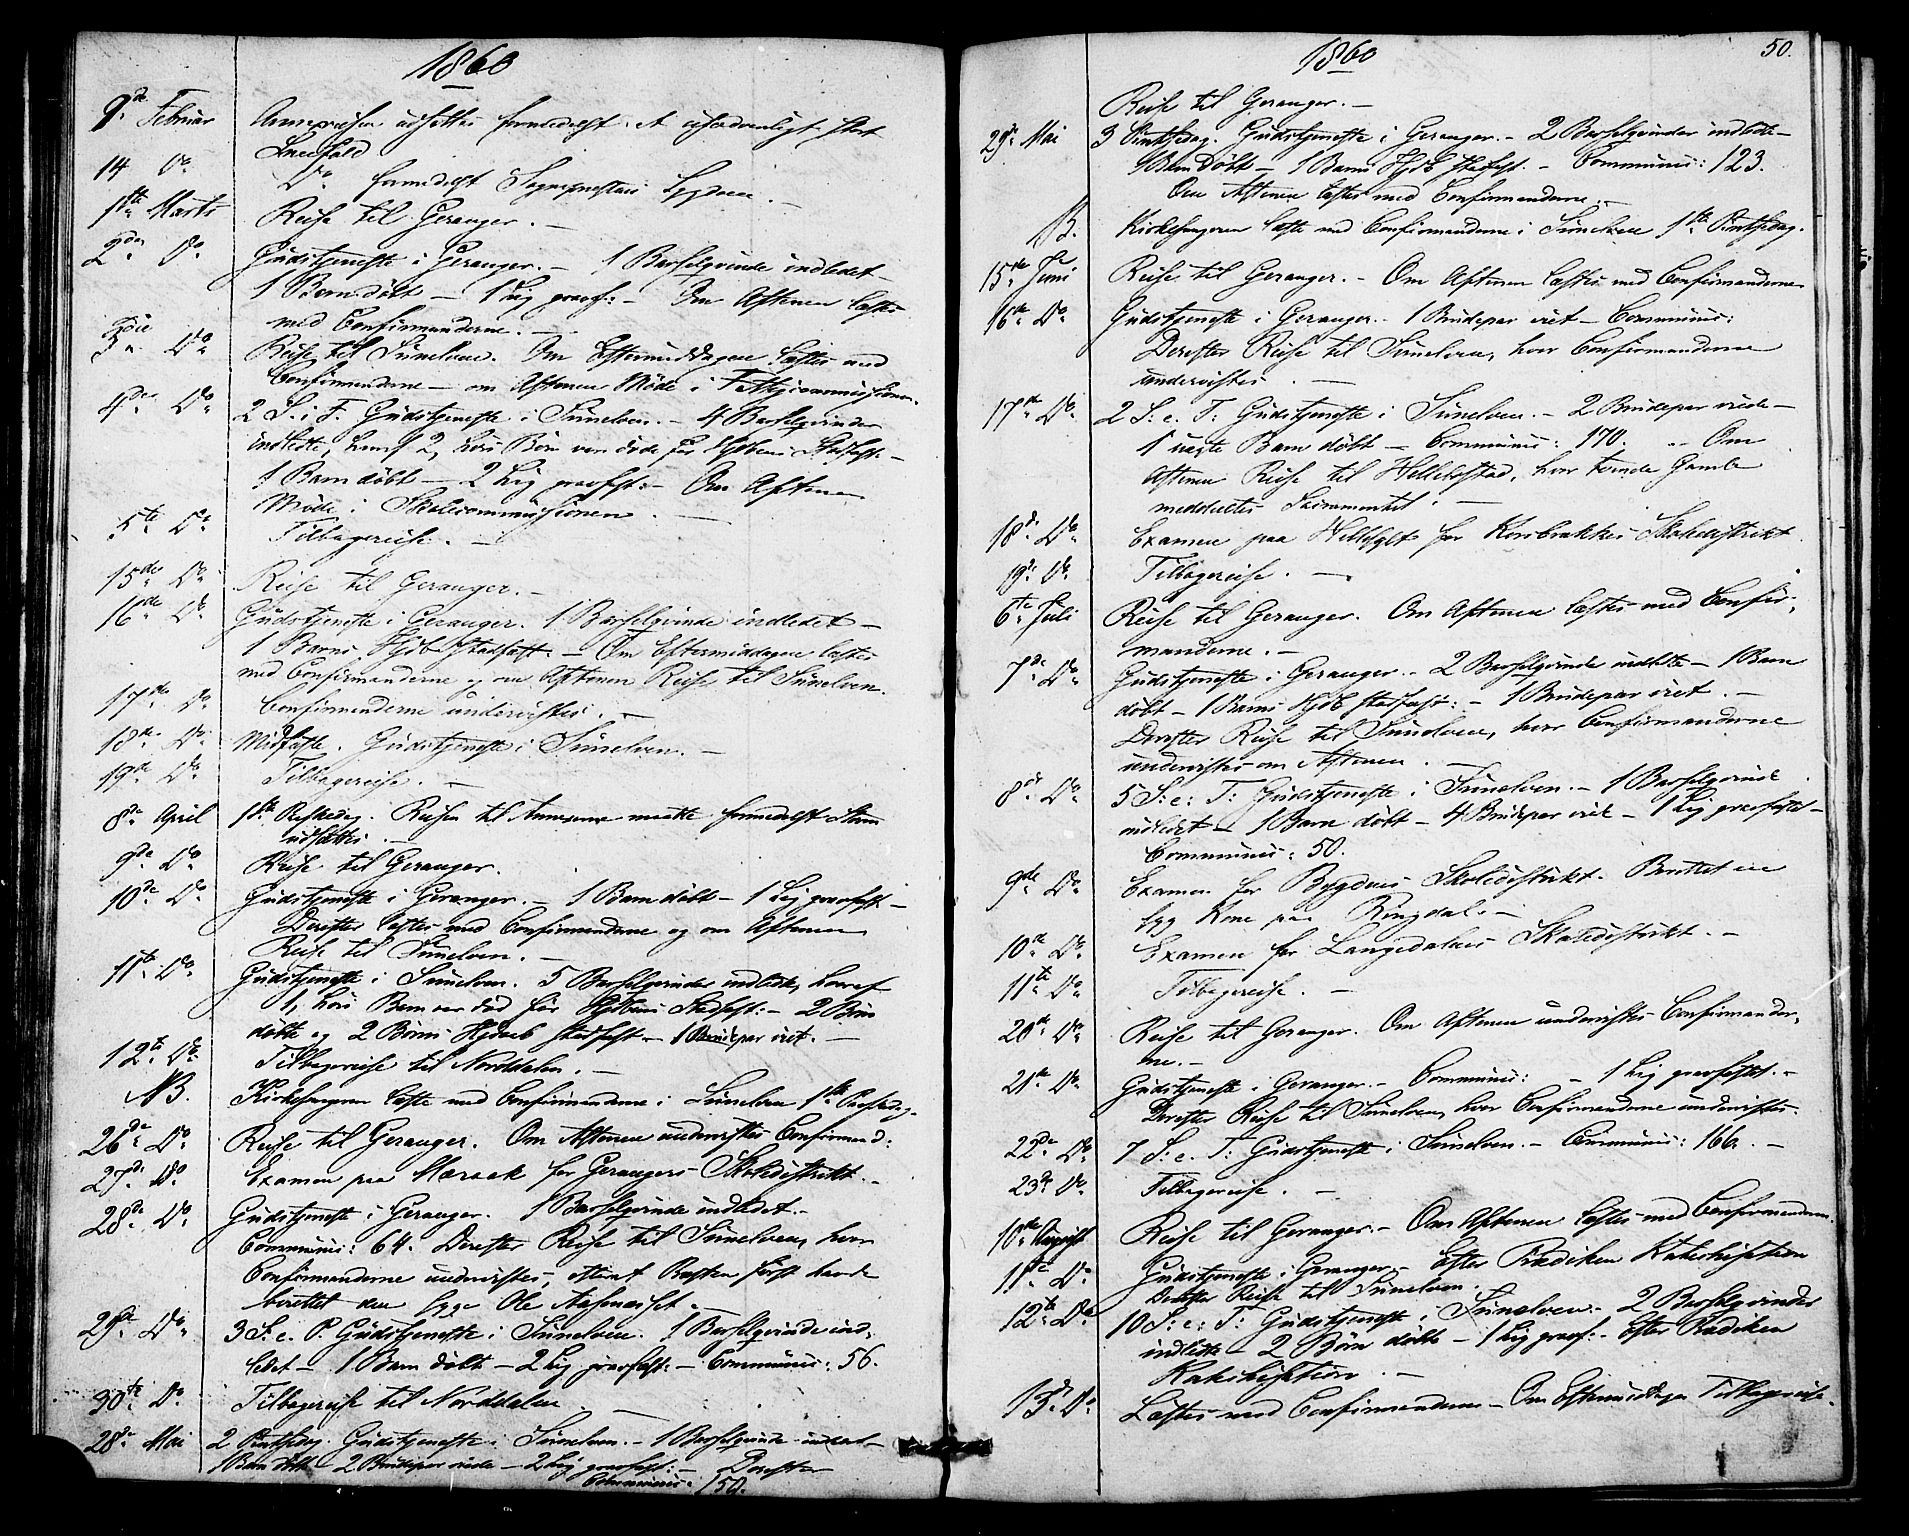 1860
9de Februar Annexreisen udsattes formedelst et usædvanligt stort
Sneefald
14 Do Do formedelst Sognepræstens Sygdom.
1ste Marts Reise til Geranger. —
2den Do Gudstjeneste i Geranger. — 1 Barselqvinde indledet
1 Barn döbt — 1 Lig gravf: — Om Aftenen læstes
med Confirmanderne. —
3die Do Reise til Sunelven. Om Eftermiddagen læstes med
Confirmanderne — om Aftenen Möde i Fattigcommissionen.
4de Do 2 S. i F. Gudstjeneste i Sunelven. — 4 Barselqvinder
indledte, hvoraf 2, hvis Börn vare döde för Hjdaabens Stadfæst. —
1 Barn döbt — 2 Lig gravfæst: — Om Aftenen
Möde i Skolecommissionen. —
5te Do Tilbagereise. —
15de Do Reise til Geranger. —
16de Do Gudstjeneste i Geranger. 1 Barselqvinde indledet —
1 Barns Hjdb stadfæst. — Om Eftermiddagen læstes
med Confirmanderne og om Aftenen Reise til Sunelven.
17de Do Confirmanderne undervistes. —
18de Do Midfaste. Gudstjeneste i Sunelven. —
19de Do Tilbagereise. —
8de April 1ste Paaskedag. Reisen til Annexerne maatte formedelst Storm
udsættes. —
9de Do Reise til Geranger.
10de Do Gudstjeneste i Geranger. — 1 Barn döbt — 1 Lig gravfæst —
Derefter læstes med Confirmanderne og om Aftenen
Reise til Sunelven. —
11te Do Gudstjeneste i Sunelven. 5 Barselqvinder indledte, hvoraf
1, hvis Barn var död för Hjdbens Stadfæst: — 2 Börn
döbte og 2 Börns Hjdaab stadfæst — 1 Brudepar viet. —
12te Do Tilbagereise til Norddalen. —
NB. Kirkesangeren læste med Confirmanderne i Sunelven 1ste Paaskedag.
26de Do Reise til Geranger. Om Aftenen undervistes Confirmand:
27de Do Examen paa Maraak for Gerangers Skoledistrikt. —
28de Do Gudstjeneste i Geranger. 1 Barselqvinde indledet. —
Communic: 64. Derefter Reise til Sunelven, hvor
Confirmanderne undervistes, efterat Præsten först havde
berettet den syge Ole
29de Do 3 S. e. P. Gudstjeneste i Sunelven. 1 Barselqvinde ind:
ledet — 1 Barn döbt — 2 Lig gravfæst: — Communic: 56.
30te Do Tilbagereise til Norddalen. —
28de Mai 2 Pintsedag. Gudstjeneste i Sunelven. — 1 Barselqvinde indledet —
1 Barn döbt — 2 Brudepar viede — 2 Lig gravfæst: — Derefter
Communic: 150.
1860
50.
Reise til Geranger. —
29de Mai 3 Pintsedag. Gudstjeneste i Geranger. — 2 Barselqvinder indledte —
1 Barn döbt — 1 Barns Hjdb stadfæst. — Communic: 123.
Om Aftenen læstes med Confirmanderne. —
NB. Kirkesangeren læste med Confirmanderne i Sunelven 1ste Pintsedag.
15de Juni Reise til Geranger. — Om Aftenen læstes med Confirmanderne
16de Do Gudstjeneste i Geranger. — 1 Brudepar viet — Communic:
Derefter Reise til Sunelven, hvor Confirmanderne
undervistes. —
17de Do 2 S: e. T: Gudstjeneste i Sunelven. — 2 Brudepar viede —
1 uægte Barn döbt — Communic: 170. — Om
Aftenen Reise til Hellebostad, hvor tvende Gamle
meddeeltes Sacramentet. —
18de Do Examen paa Hellesylt for Korsbrekkes Skoledistrikt.
19de Do Tilbagereise. —
6te Juli Reise til Geranger. Om Aftenen læstes med Confir:
manderne. —
7de Do Gudstjeneste i Geranger. — 2 Barselqvinder indledte — 1 Barn
döbt — 1 Barns Hjdb stadfæst: — 1 Brudepar viet. —
Derefter Reise til Sunelven, hvor Confirmanderne
undervistes om Aftenen. —
8de Do 5 S: e: T: Gudstjeneste i Sunelven. — 1 Barselqvinde
indledet — 1 Barn döbt — 4 Brudepar viet — 1 Lig gravfæstet —
Communic: 50.
9de Do Examen for Bygdens Skoledistrikt. Berettet en
syg Kone paa Ringdal. —
10de Do Examen for Langedalens Skoledistrikt. —
11te Do Tilbagereise. —
20de Do Reise til Geranger. Om Aftenen undervistes Confirmander:
ne. —
21de Do Gudstjeneste i Geranger. — Communic: — 1 Lig gravfæstet. —
Derefter Reise til Sunelven, hvor Confirmanderne undervistes.
22de Do 7 S: e. T: Gudstjeneste i Sunelven. — Communic: 166. —
23de Do Tilbagereise. —
10de August Reise til Geranger. — Om Aftenen læstes med Confirmanderne.
11te Do Gudstjeneste i Geranger. Efter Prædiken Katekisation
Derefter Reise til Sunelven.
12te Do 10 S: e: T: Gudstjeneste i Sunelven. 2 Barselqvinder
indledte — 2 Börn döbte — 1 Lig gravf: — Efter Prædiken
Katekisation. —
13de Do Læstes med Confirmanderne — Om Eftermiddagen Tilbagereise.